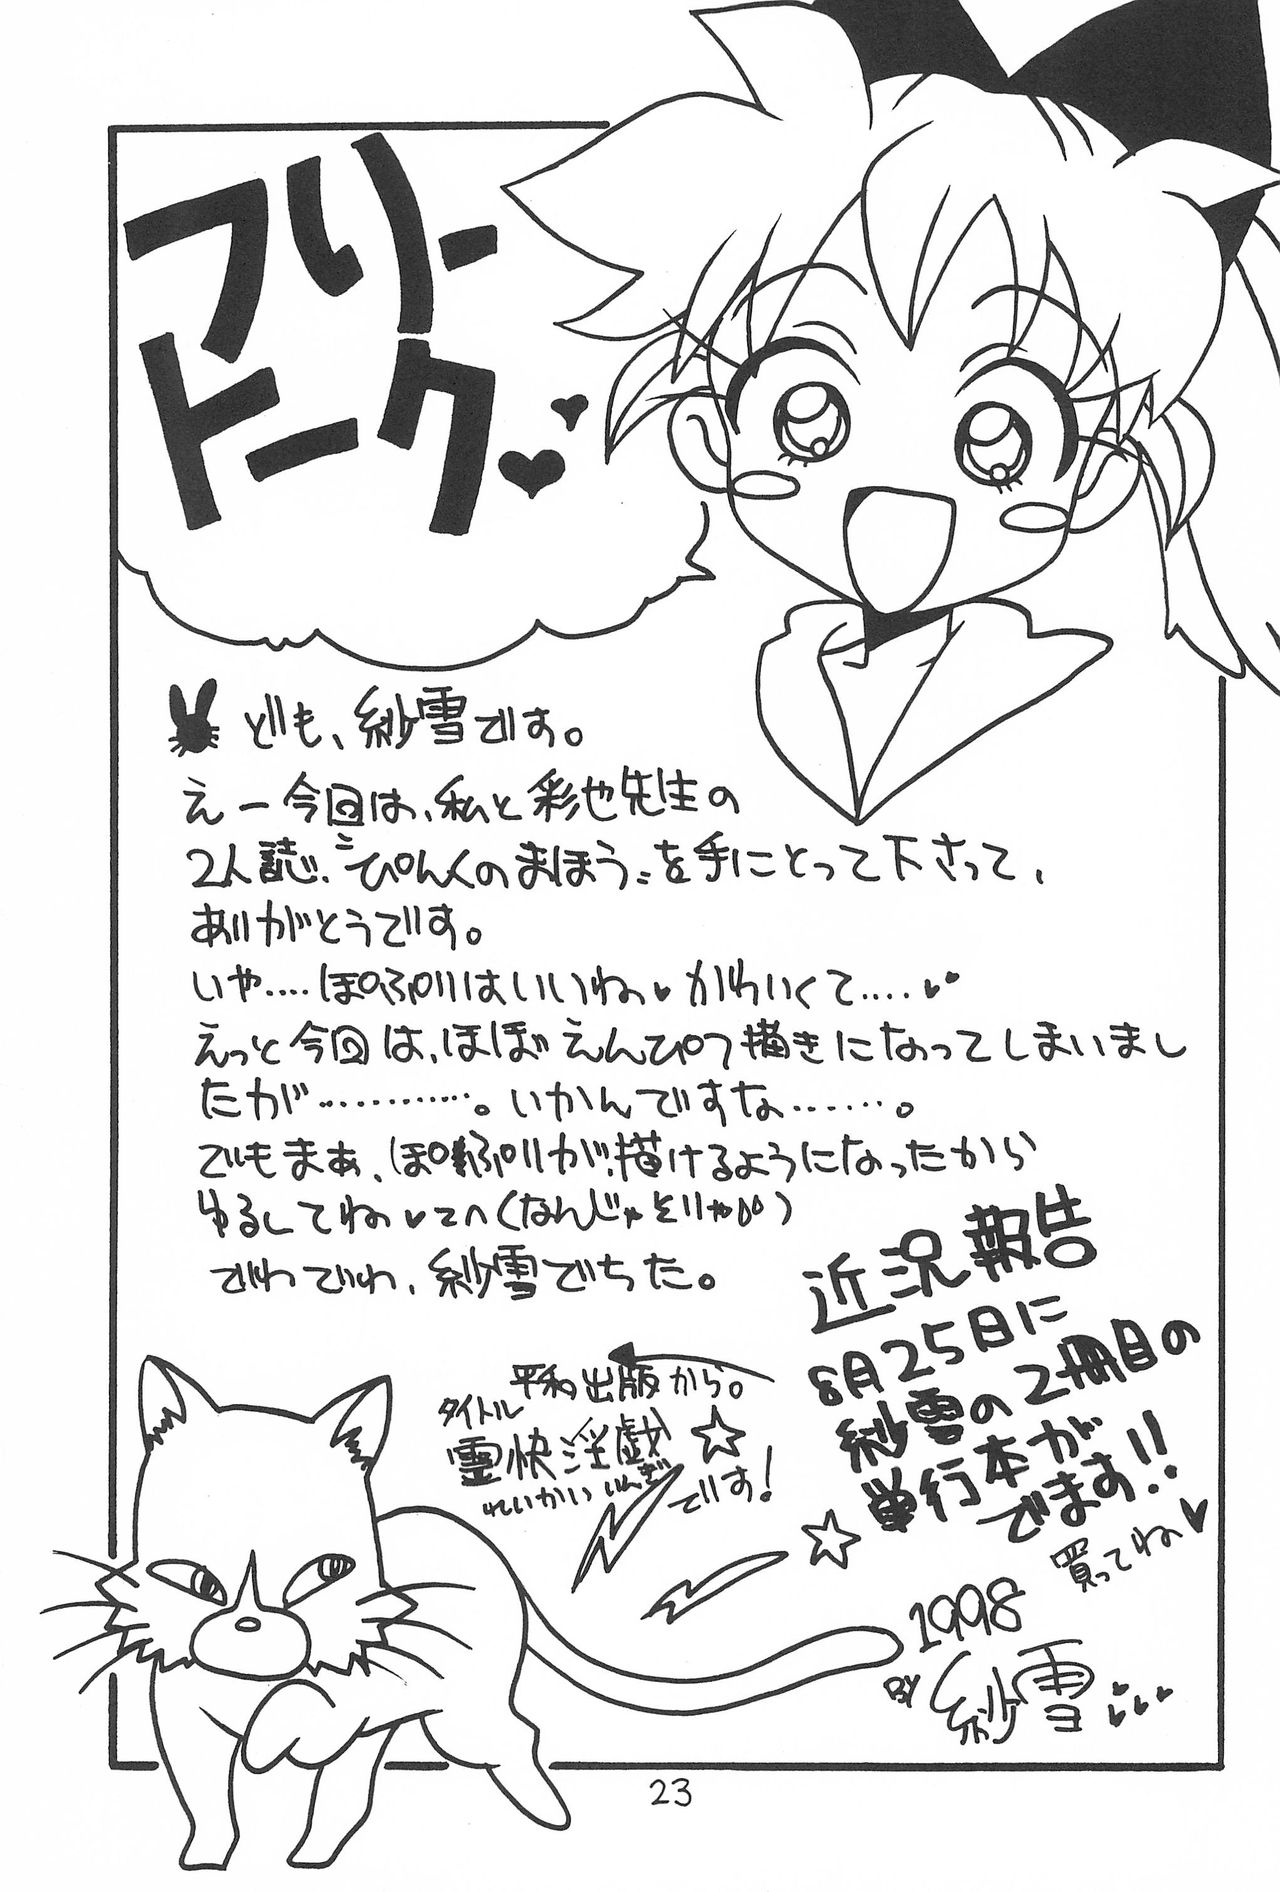 フリー
トーク
ども、紗雪です。
えー今回は、私と彩也先生の
2人誌、〝ぴんくのまほう〟を手にとって下さって、
ありがとうです。
いや....ぽぷりはいいね♥かわいくて....♥♥
えっと今回は、ほぼえんぴつ描きになってしまいまし
たが............。いかんですな.......。
でもまぁ、ぽぷりが、描けるようになったから
ゆるしてね♥てへ(なんじゃそりゃ)
でわでわ、紗雪でちた。
近況報告
8月25日に
紗雪の2冊目の
単行本が
でます!!
買ってね♥
平和出版から。
タイトル
霊快淫戯☆
れいかいいんぎ
です!
1998
BY 紗雪
23